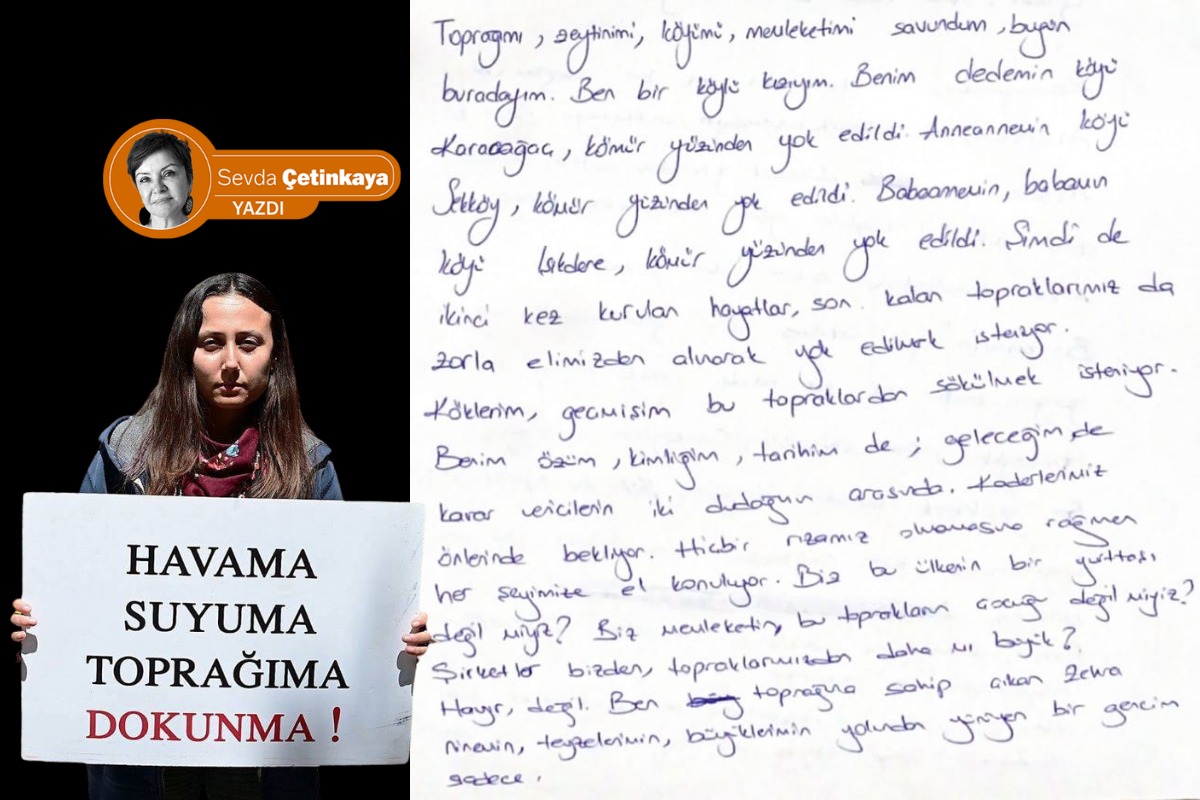 Sevda Çetinkaya
YAZDI
HAVAMA
SUYUMA
TOPRAĞIMA
DOKUNMA !
Toprağımı, zeytinimi, köyümü, memleketimi savundum, bugün
buradayım. Ben bir köylü kızıyım. Benim dedemin köyü
Karacaağaç, kömür yüzünden yok edildi. Anneannemin köyü
Sekköy, kömür yüzünden yok edildi. Babaannemin, babamın
köyü Işıkdere, kömür yüzünden yok edildi. Şimdi de
ikinci kez kurulan hayatlar, son kalan topraklarımız da
zorla elimizden alınarak yok edilmek isteniyor.
Köklerim, geçmişim bu topraklardan sökülmek isteniyor.
Benim özüm, kimliğim, tarihim de; geleceğim de
karar vericilerin iki dudağının arasında. Kaderlerimiz
önlerinde bekliyor. Hiçbir rızamız olmamasına rağmen
her şeyimize el konuluyor. Biz bu ülkenin bir yurttaşı
değil miyiz? Biz memleketin, bu toprakların çocuğu değil miyiz?
Şirketler bizden, topraklarımızdan daha mı büyük?
Hayır, değil. Ben toprağına sahip çıkan Zehra
ninemin, teyzelerimin, büyüklerimin yolundan yürüyen bir gencim
sadece.